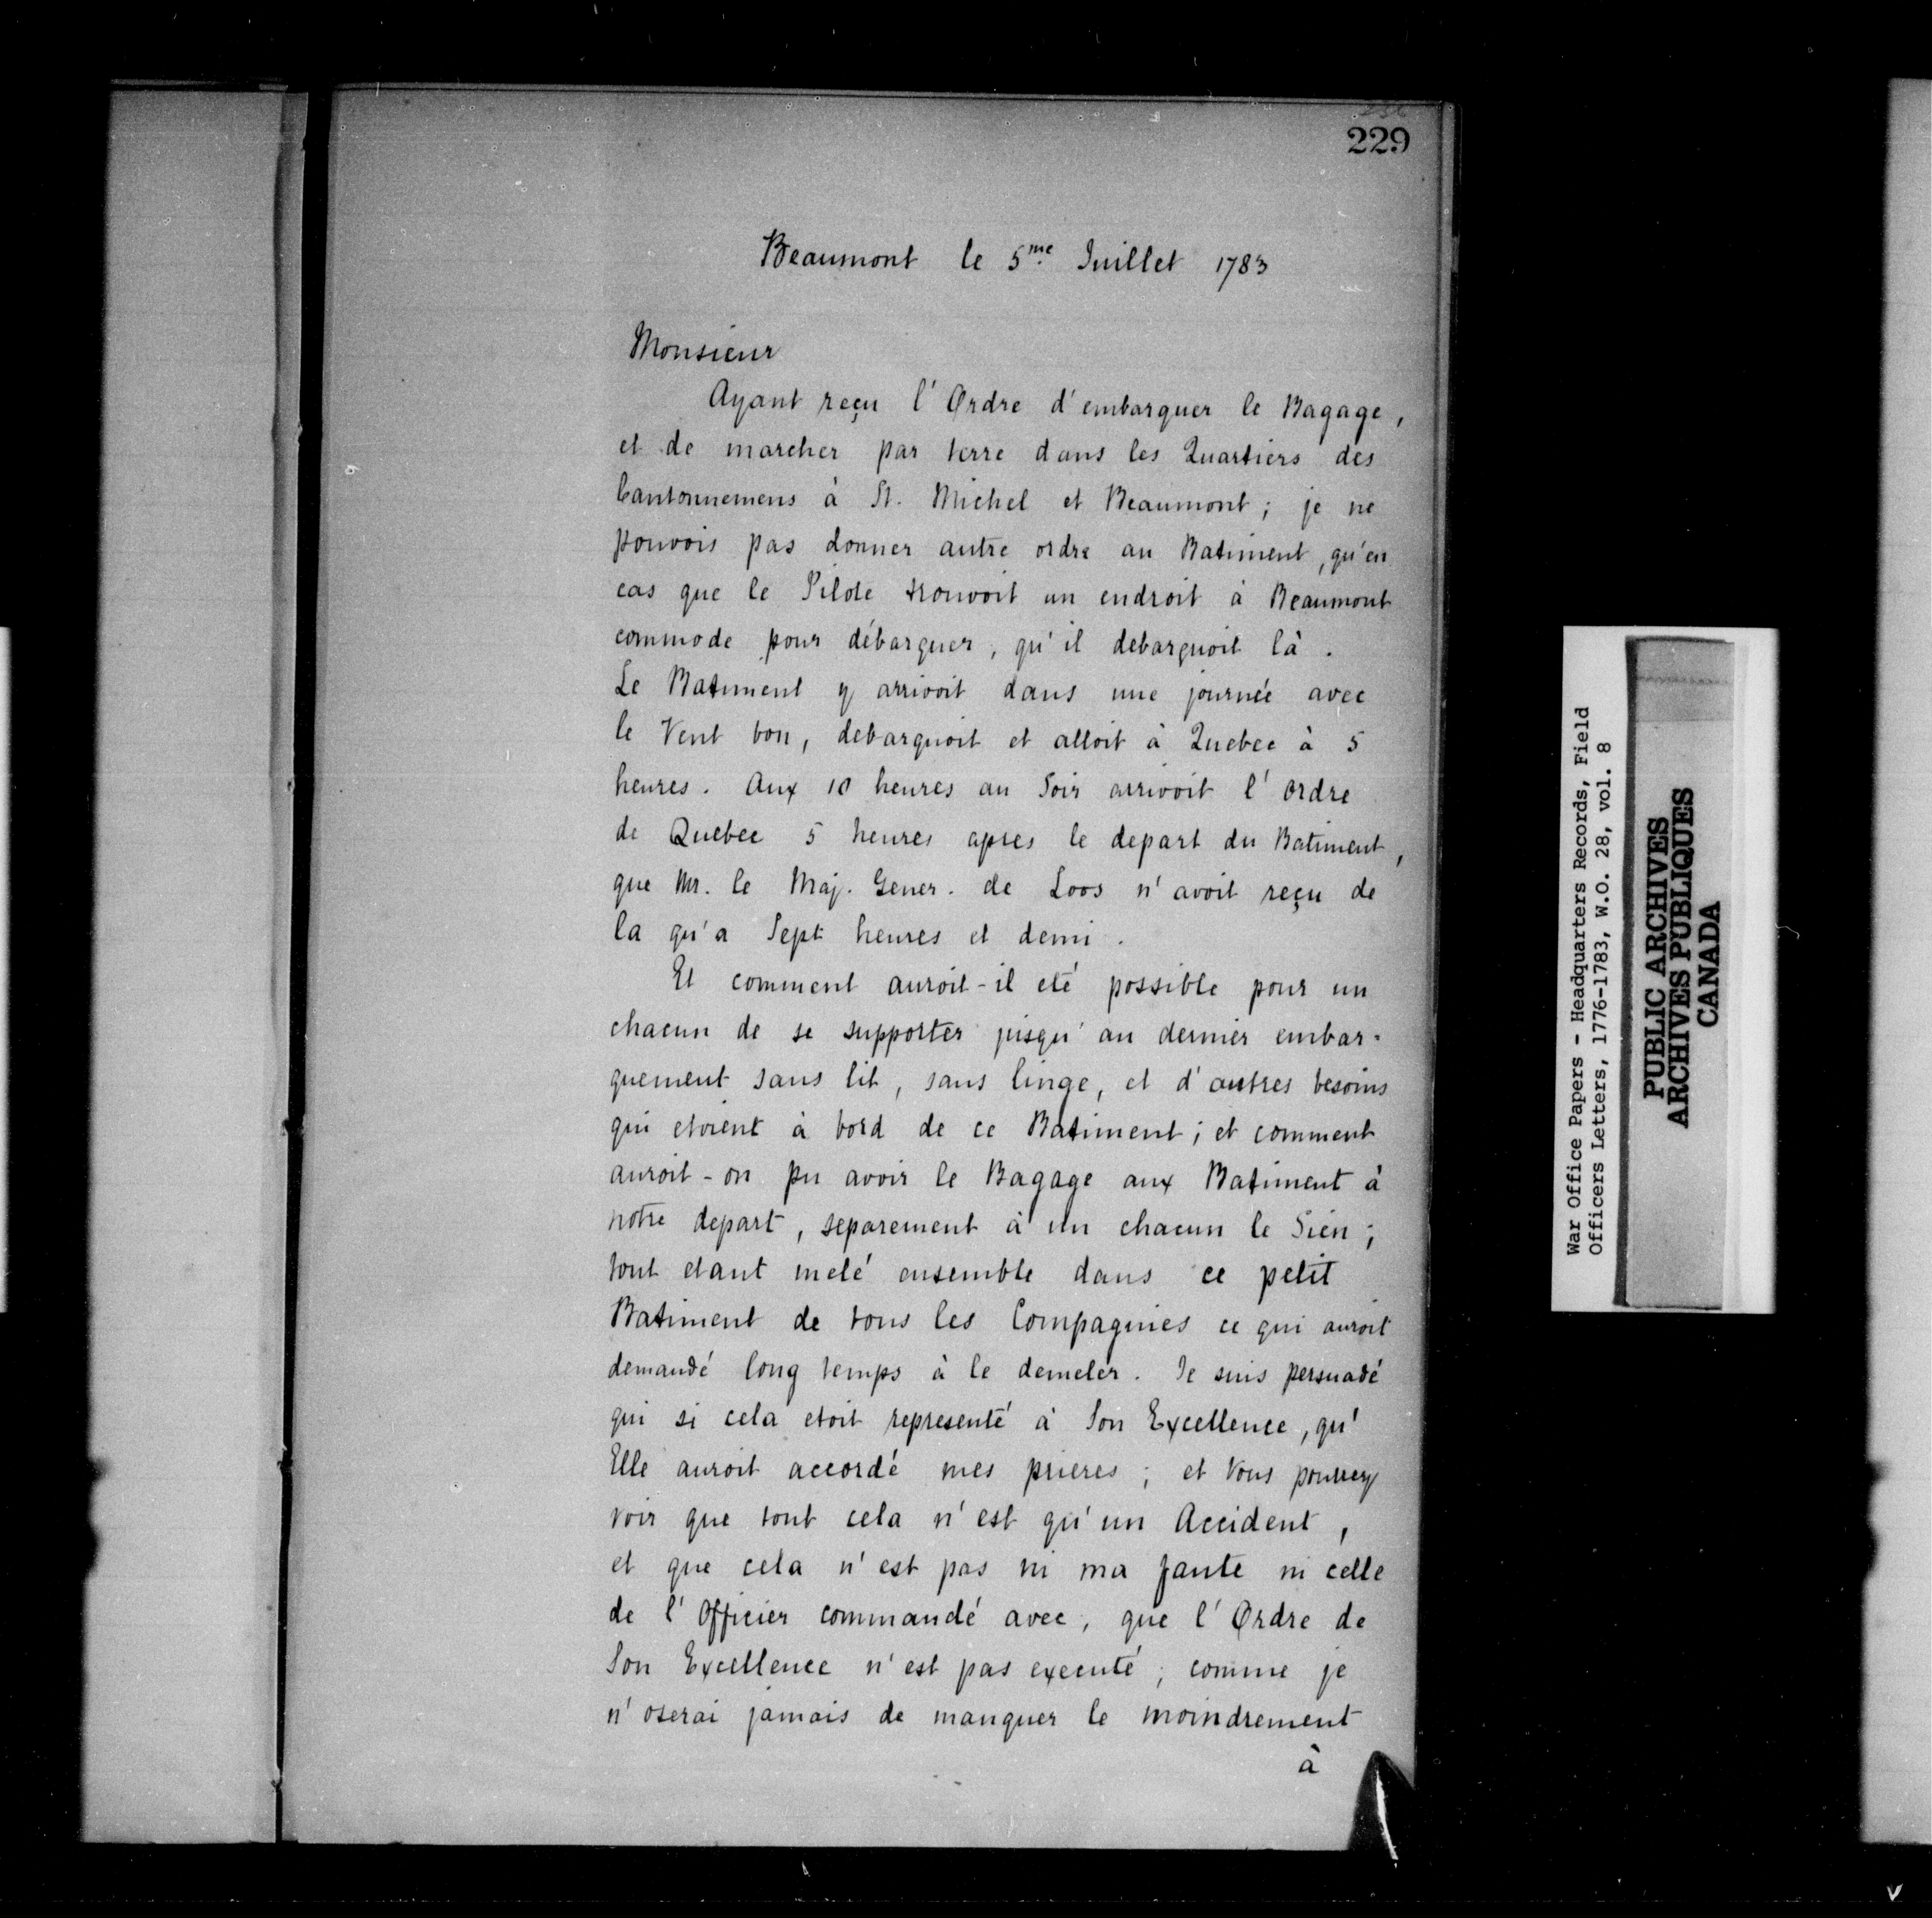 229
Beaumont le 5me Juillet 1783
Monsieur
Ayant reçu l'Ordre d'embarquer le Bagage,
et de marcher par terre dans les Quartiers des
Cantonnemens à St. Michel et Beaumont; je ne
pouvois pas donner autre ordre au Batiment, qu'en
cas que le Pilote trouvoit un endroit à Beaumont
commode pour débarquer, qu'il debarquoit là.
Le Batiment y arrivoit dans une journée avec
le Vent bon, debarquoit et alloit à Quebec à 5
heures. Aux 10 heures au Soir arrivoit l'ordre
de Quebec 5 heures apres le depart du Batiment,
que Mr. le Maj. Gener. de Loos n'avoit reçu de
la qu'a Sept heures et demi.
Et comment auroit-il eté possible pour un
chacun de se supporter jusqu'au dernier embar-
quement sans lit, sans linge, et d'autres besoins
qui etoient à bord de ce Batiment; et comment
auroit-on pu avoir le Bagage aux Batiment à
notre depart, separement à un chacun le Sien;
tout etant melé ensemble dans ce petit
Batiment de tous les Compagnies ce qui auroit
demandé long temps à le demeler. Je suis persuadé
qui si cela etoit representé à Son Excellence, qu'
Elle auroit accordé mes prieres; et Vous pourrez
voir que tout cela n'est qu'un Accident,
et que cela n'est pas ni ma faute ni celle
de l'Officier commandé avec, que l'Ordre de
Son Excellence n'est pas executé; comme je
n'oserai jamais de manquer le moindrement
à
War Office Papers - Headquarters Records, Field
Officers Letters, 1776-1783, W.O. 28, vol. 8
PUBLIC ARCHIVES
ARCHIVES PUBLIQUES
CANADA